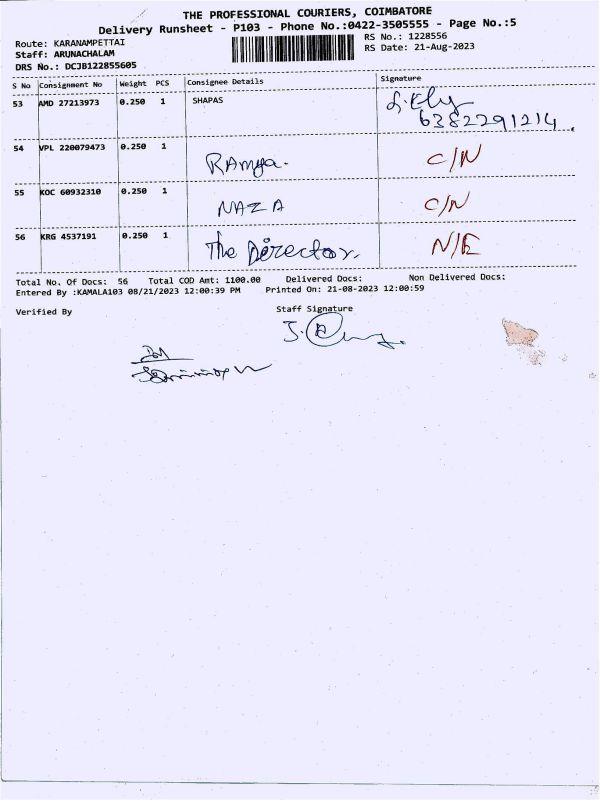 THE PROFESSIONAL COURIERS, COIMBATORE
Delivery Runsheet - P103 - Phone No.:0422-3505555 - Page No.:5
Route: KARANAMPETTAI
RS No.: 1228556
Staff: ARUNACHALAM
RS Date: 21-Aug-2023
DRS No.: DCJB122855605
S No Consignment No Weight PCS Consignee Details Signature
53 AMD 27213973 0.250 1 SHAPAS
6382291214
54 VPL 220079473 0.250 1 Ramya. C/N
55 KOC 60932310 0.250 1 NAZA C/N
56 KRG 4537191 0.250 1 The Director. N/E
Total No. Of Docs: 56 Total COD Amt: 1100.00 Delivered Docs: Non Delivered Docs:
Entered By :KAMALA103 08/21/2023 12:00:39 PM Printed On: 21-08-2023 12:00:59
Verified By Staff Signature